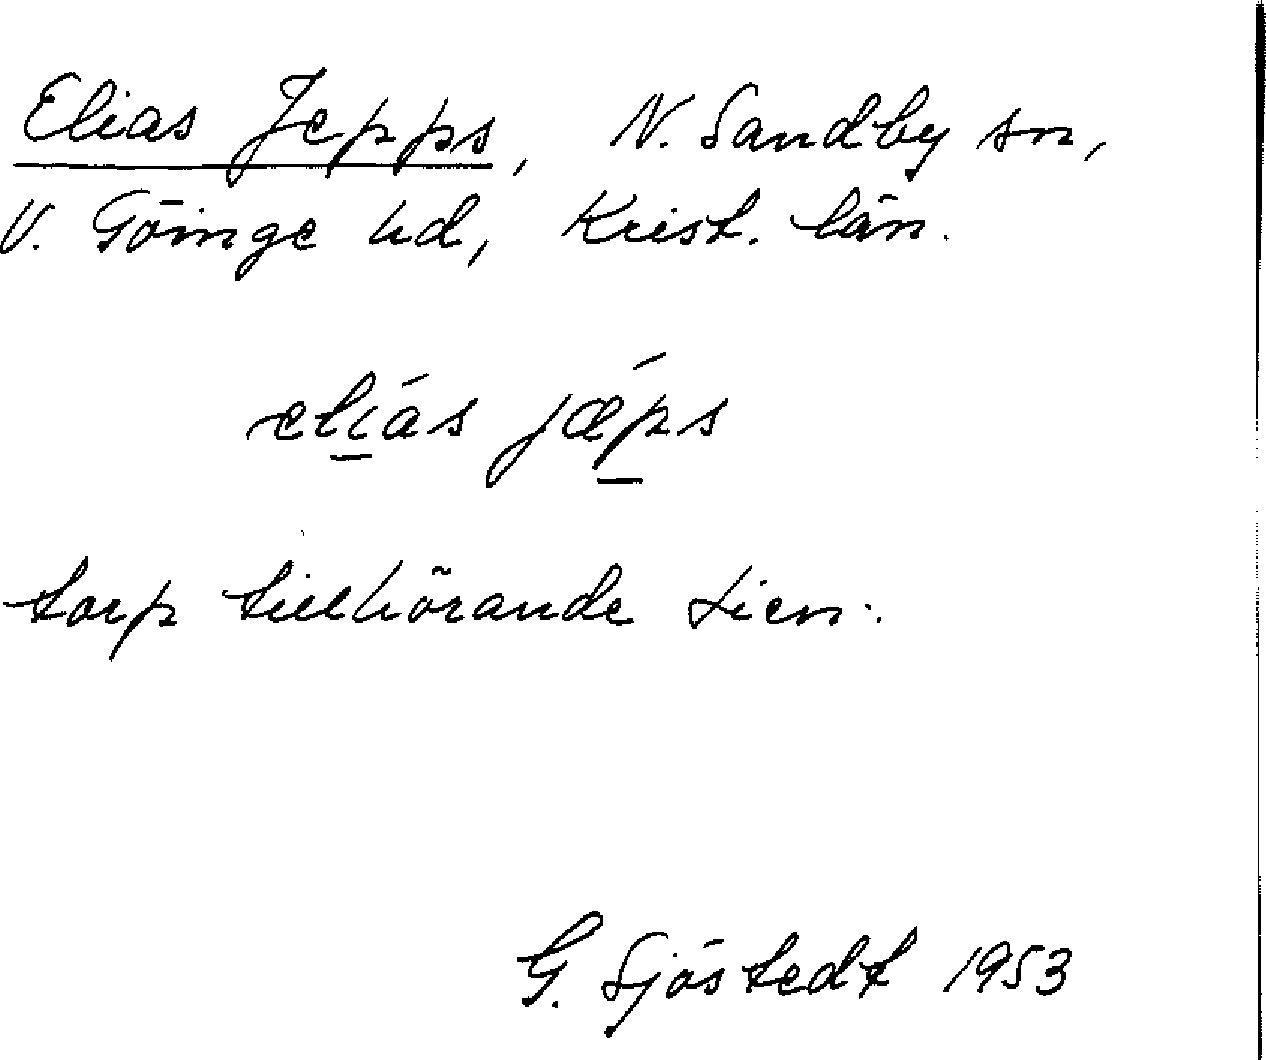 Elias Jepps, N. Sandby sn,
V. Göinge hd, Krist. län.
eliás jǽps
torp tillhörande
G. Sjöstedt 1953